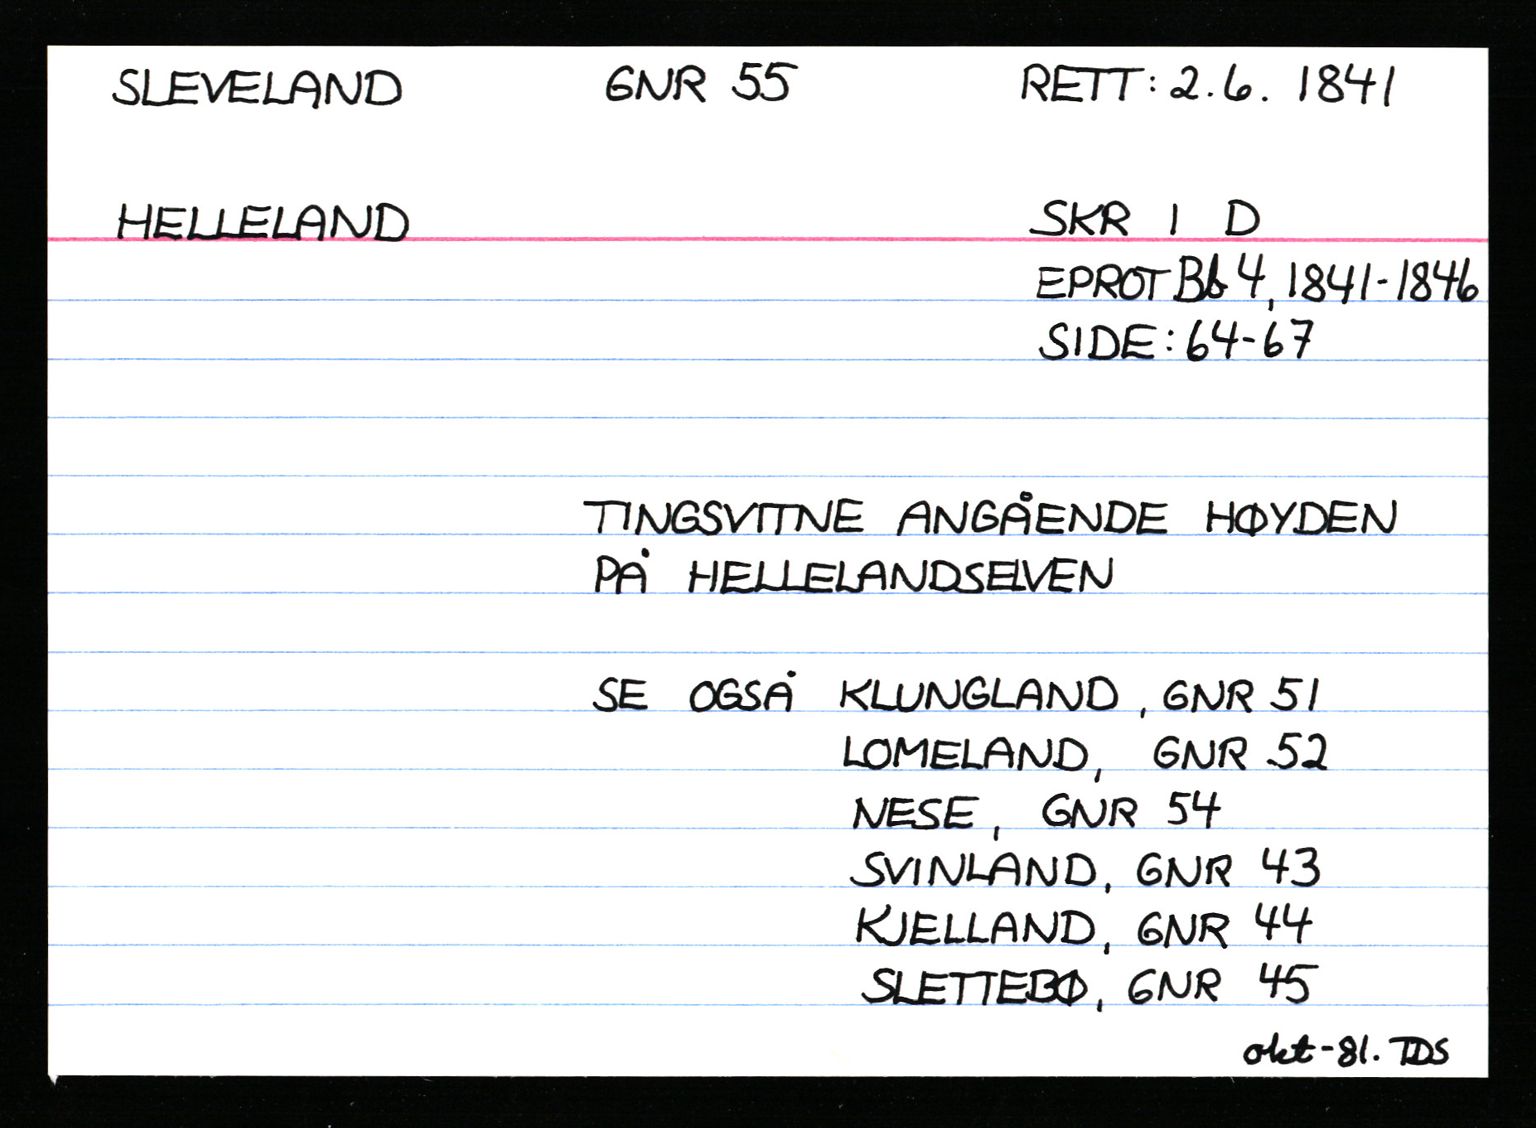 SLEVELAND GNR 55 RETT: 2.6. 1841
HELLELAND SKR I D
EPROT Bb 4, 1841-1846
SIDE: 64-67
TINGSVITNE ANGÅENDE HØYDEN
PÅ HELLELANDSELVEN
SE OGSÅ KLUNGLAND, GNR 51
LOMELAND, GNR 52
NESE, GNR 54
SVINLAND, GNR 43
KJELLAND, GNR 44
SLETTEBØ, GNR 45
okt-81. TDS